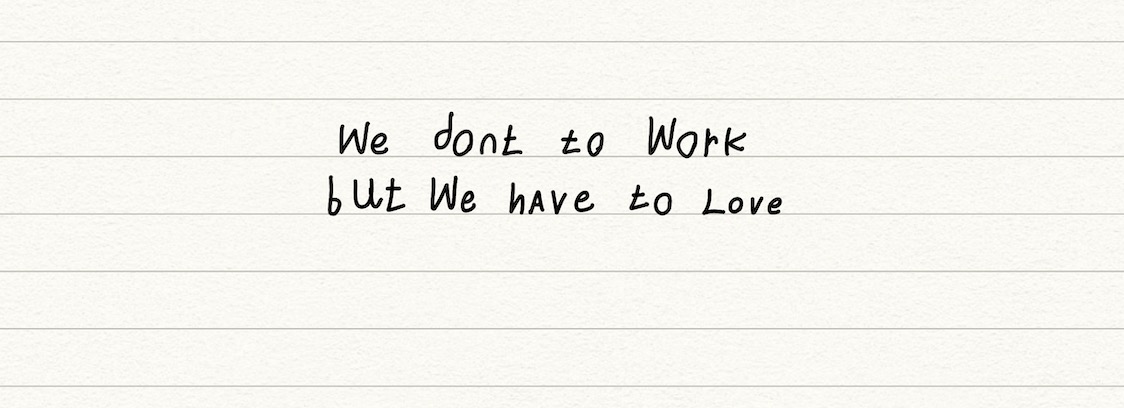 We dont to Work
but We hAve to Love